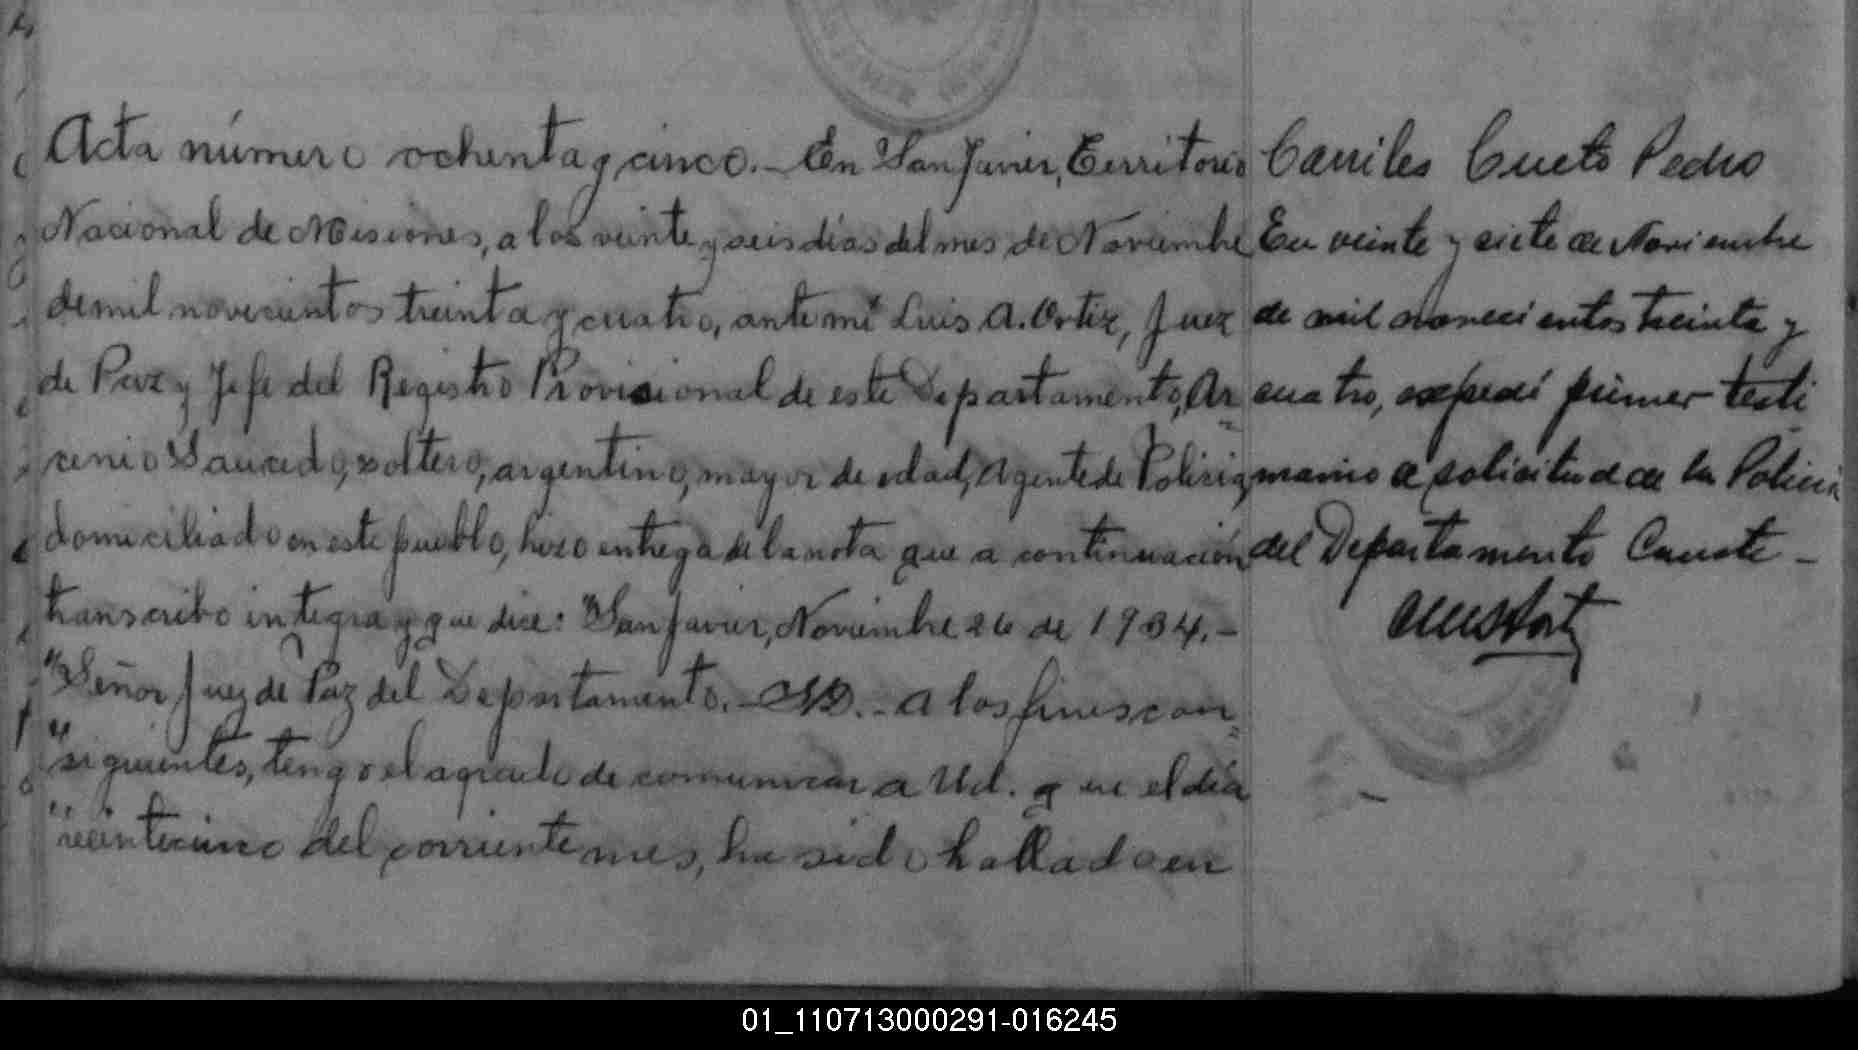 Acta número ochenta y cinco.- En San Javier, Territorio
Nacional de Misiones, a los veinte y seis días del mes de Noviembre
de mil novecientos treinta y cuatro, ante mí Luis A. Ortiz, Juez
de Paz y Jefe del Registro Provisional de este Departamento, Ar=
cenio Saucedo, soltero, argentino, mayor de edad, Agente de Policia,
domiciliado en este pueblo, hizo entrega de la nota que a continuación
transcribo integra y que dice: "San Javier, Noviembre 26 de 1934.-
"Señor Juez de Paz del Departamento.- S/D.- A los fines con=
"siguientes, tengo el agrado de comunicar a Ud. que el día
"veinticinco del corriente mes, ha sido hallado en
Carriles Cueto Pedro
En veinte y siete de Noviembre
de mil novecientos treinta y
cuatro, expedí primer testi
monio a solicitud de la Policia
del Departamento Conste -
01_110713000291-016245